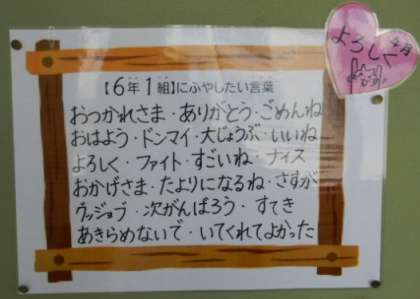 よろしく
4月
【6年1組】にふやしたい言葉
おつかれさま・ありがとう・ごめんね
おはよう・ドンマイ・大じょうぶ・いいね
よろしく・ファイト・すごいね・ナイス
おかげさま・たよりになるね・さすが
グッジョブ・次がんばろう・すてき
あきらめないで・いてくれてよかった